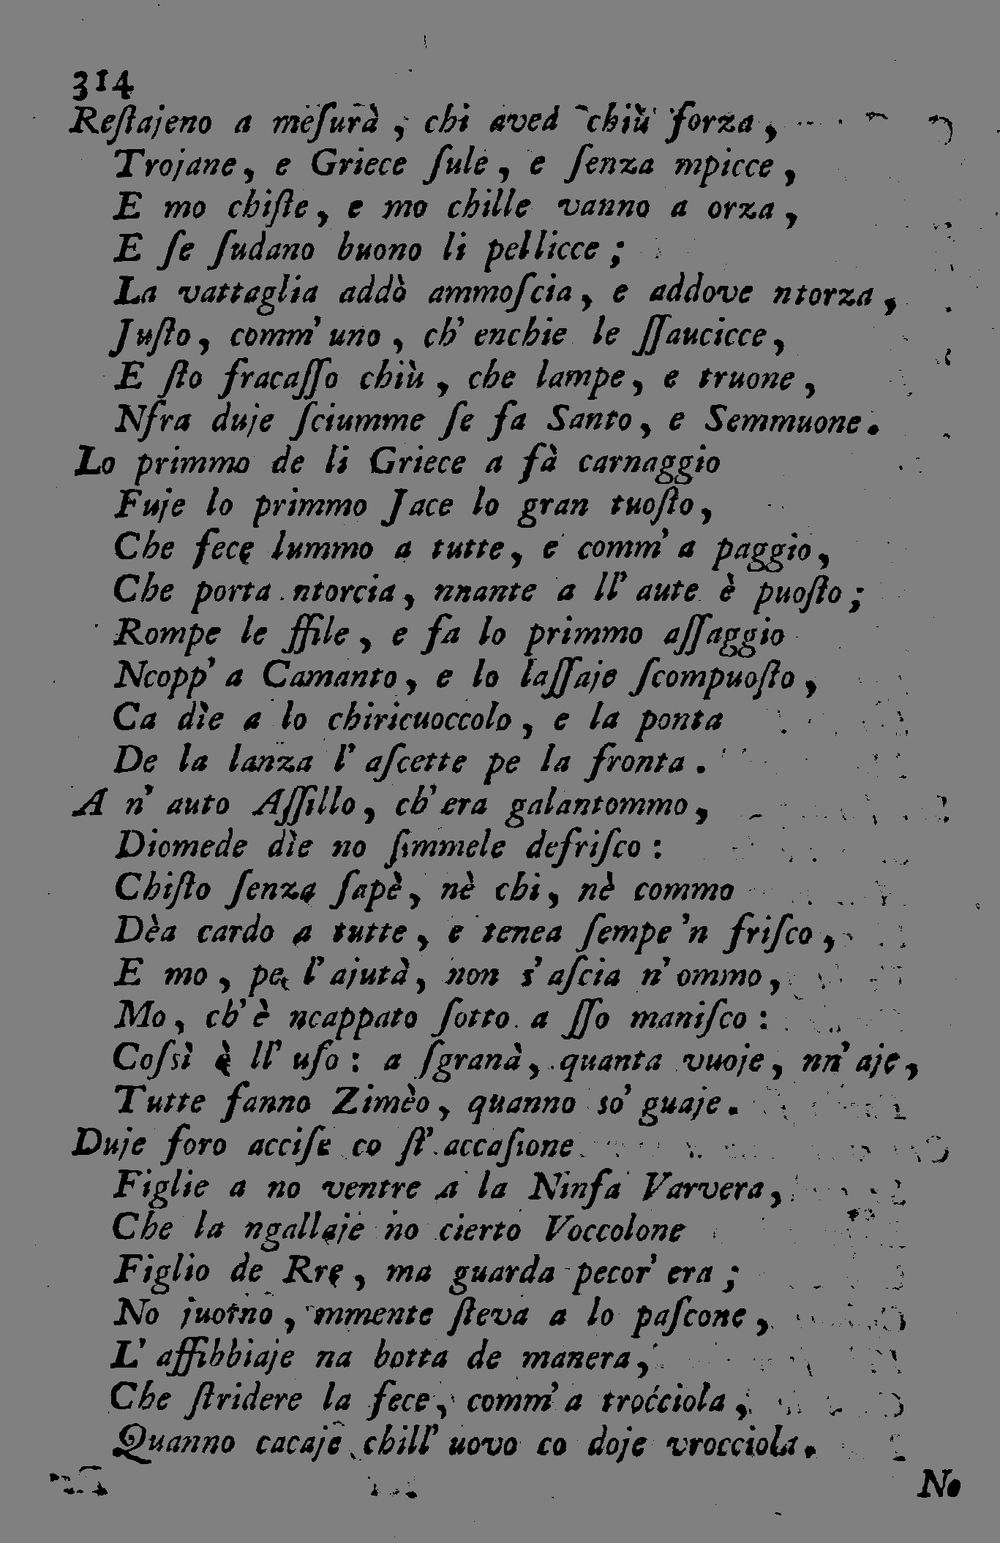 314
Reſtajeno a meſurà, chi aveá chiù forza,
Trojane, e Griece ſule, e ſenza mpicce,
E mo chiſte, e mo chille vanno a orza,
E ſe ſudano buono li pellicce;
La vattaglia addò ammoſcia, e addove ntorza,
Juſto, comm' uno, ch' enchie le ſſaucicce,
E ſto fracaſſo chiù, che lampe, e truone,
Nfra duje ſciumme ſe fa Santo, e Semmuone.
Lo primmo de li Griece a fà carnaggio
Fuje lo primmo Jace lo gran tuoſto,
Che fece lummo a tutte, e comm' a paggio,
Che porta ntorcia, nnante a ll' aute è puoſto;
Rompe le ffile, e fa lo primmo aſſaggio
Ncopp' a Camanto, e lo laſſaje ſcompuoſto,
Ca dìe a lo chiricuoccolo, e la ponta
De la lanza l' aſcette pe la fronta.
A n' auto Aſſillo, ch' era galantommo,
Diomede dìe no ſimmele defriſco:
Chiſto ſenza ſapè, nè chi, nè commo
Dèa cardo a tutte, e tenea ſempe 'n friſco,
E mo, pe l' ajutà, non s' aſcia n' ommo,
Mo, ch' è ncappato ſotto a ſſo maniſco:
Coſsì è ll' uſo: a ſgranà, quanta vuoje, nn' aje,
Tutte fanno Zimèo, quanno so' guaje.
Duje foro acciſe co ſt' accaſione
Figlie a no ventre a la Ninfa Varvera,
Che la ngallaje no cierto Voccolone
Figlio de Rre, ma guarda pecor' era;
No juorno, mmente ſteva a lo paſcone,
L' affibbiaje na botta de manera,
Che ſtridere la fece, comm' a trocciola,
Quanno cacaje chill' uovo co doje vrocciola.
No